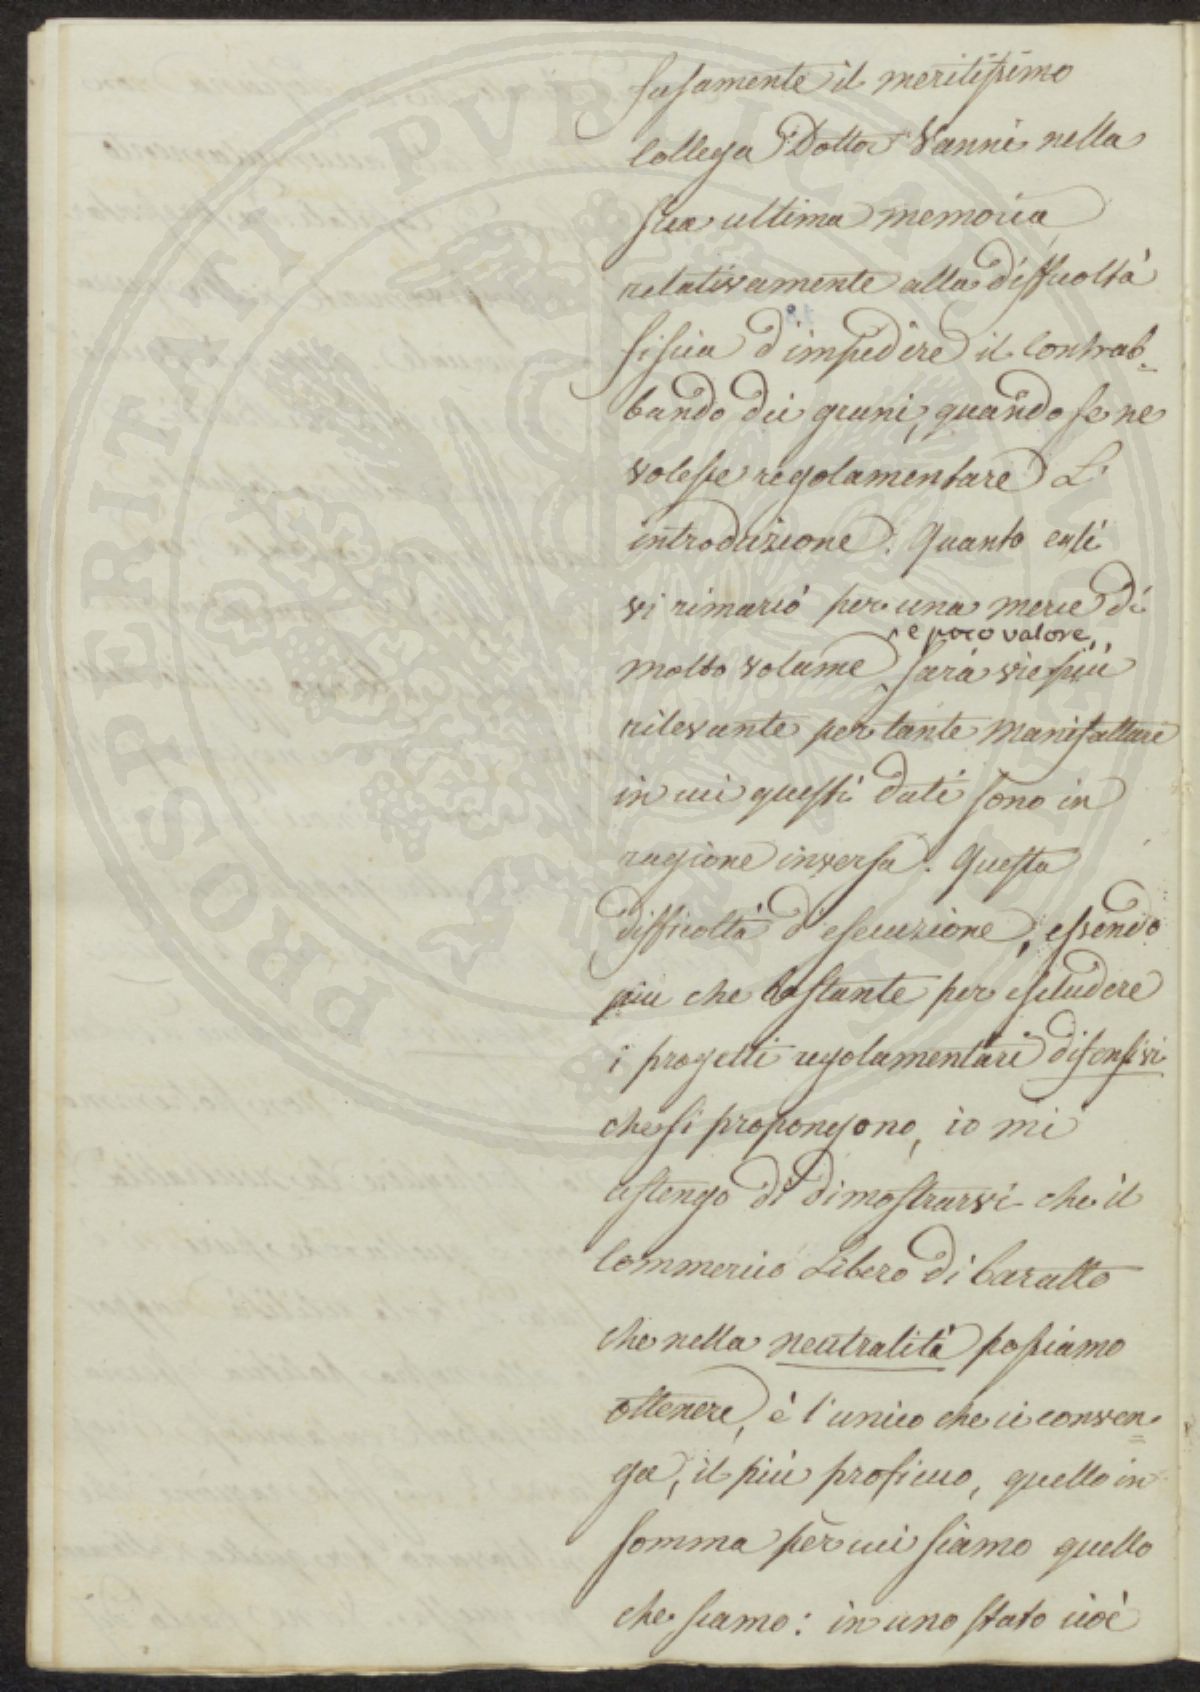 fusamente il meritissimo
Collega Dottor Vanni nella
sua ultima memoria
relativamente alla difficoltà
fisica d'impedire il Contrab=
bando dei grani, quando se ne
volesse regolamentare L'
introduzione. Quanto egli
vi rimarcò per una merce di
e poco valore,
molto volume sarà vie più
rilevante per tante Manifatture
in cui questi dati sono in
ragione inversa. Questa
difficoltà d'esecuzione, essendo
più che bastante per escludere
i progetti regolamentari difensivi
che si propongono, io mi
astengo di dimostrarvi che il
Commercio Libero di baratto
che nella neutralità possiamo
ottenere, è l'unico che ci conven=
ga, il più proficuo, quello in
somma per cui siamo quello
che siamo: in uno stato cioè
PROSPERITATI PVBLICAE